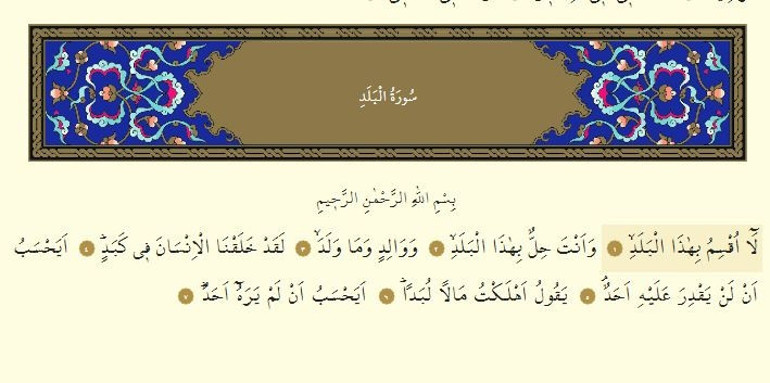 سُورَةُ الْبَلَدِ
بِسْمِ اللهِ الرَّحْمٰنِ الرَّح۪يمِ
لَٓا اُقْسِمُ بِهٰذَا الْبَلَدِۙ ١ وَاَنْتَ حِلٌّ بِهٰذَا الْبَلَدِۙ ٢ وَوَالِدٍ وَمَا وَلَدَۙ ٣ لَقَدْ خَلَقْنَا الْاِنْسَانَ ف۪ي كَبَدٍۜ ٤ اَيَحْسَبُ
اَنْ لَنْ يَقْدِرَ عَلَيْهِ اَحَدٌۢ ٥ يَقُولُ اَهْلَكْتُ مَالًا لُبَدًاۜ ٦ اَيَحْسَبُ اَنْ لَمْ يَرَهُٓ اَحَدٌۜ ٧